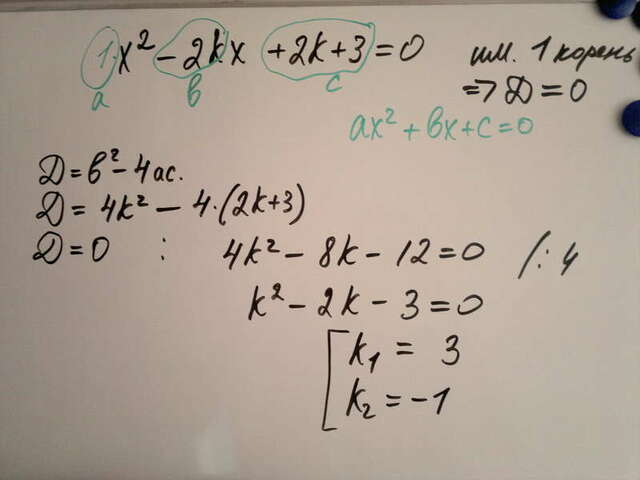 1·x² − 2kx + 2k + 3 = 0
им. 1 корень
a в c
=> D = 0
ax² + вx + c = 0
D = в² − 4ac.
D = 4k² − 4·(2k+3)
D = 0 : 4k² − 8k − 12 = 0 /: 4
k² − 2k − 3 = 0
[ k₁ = 3
k₂ = −1